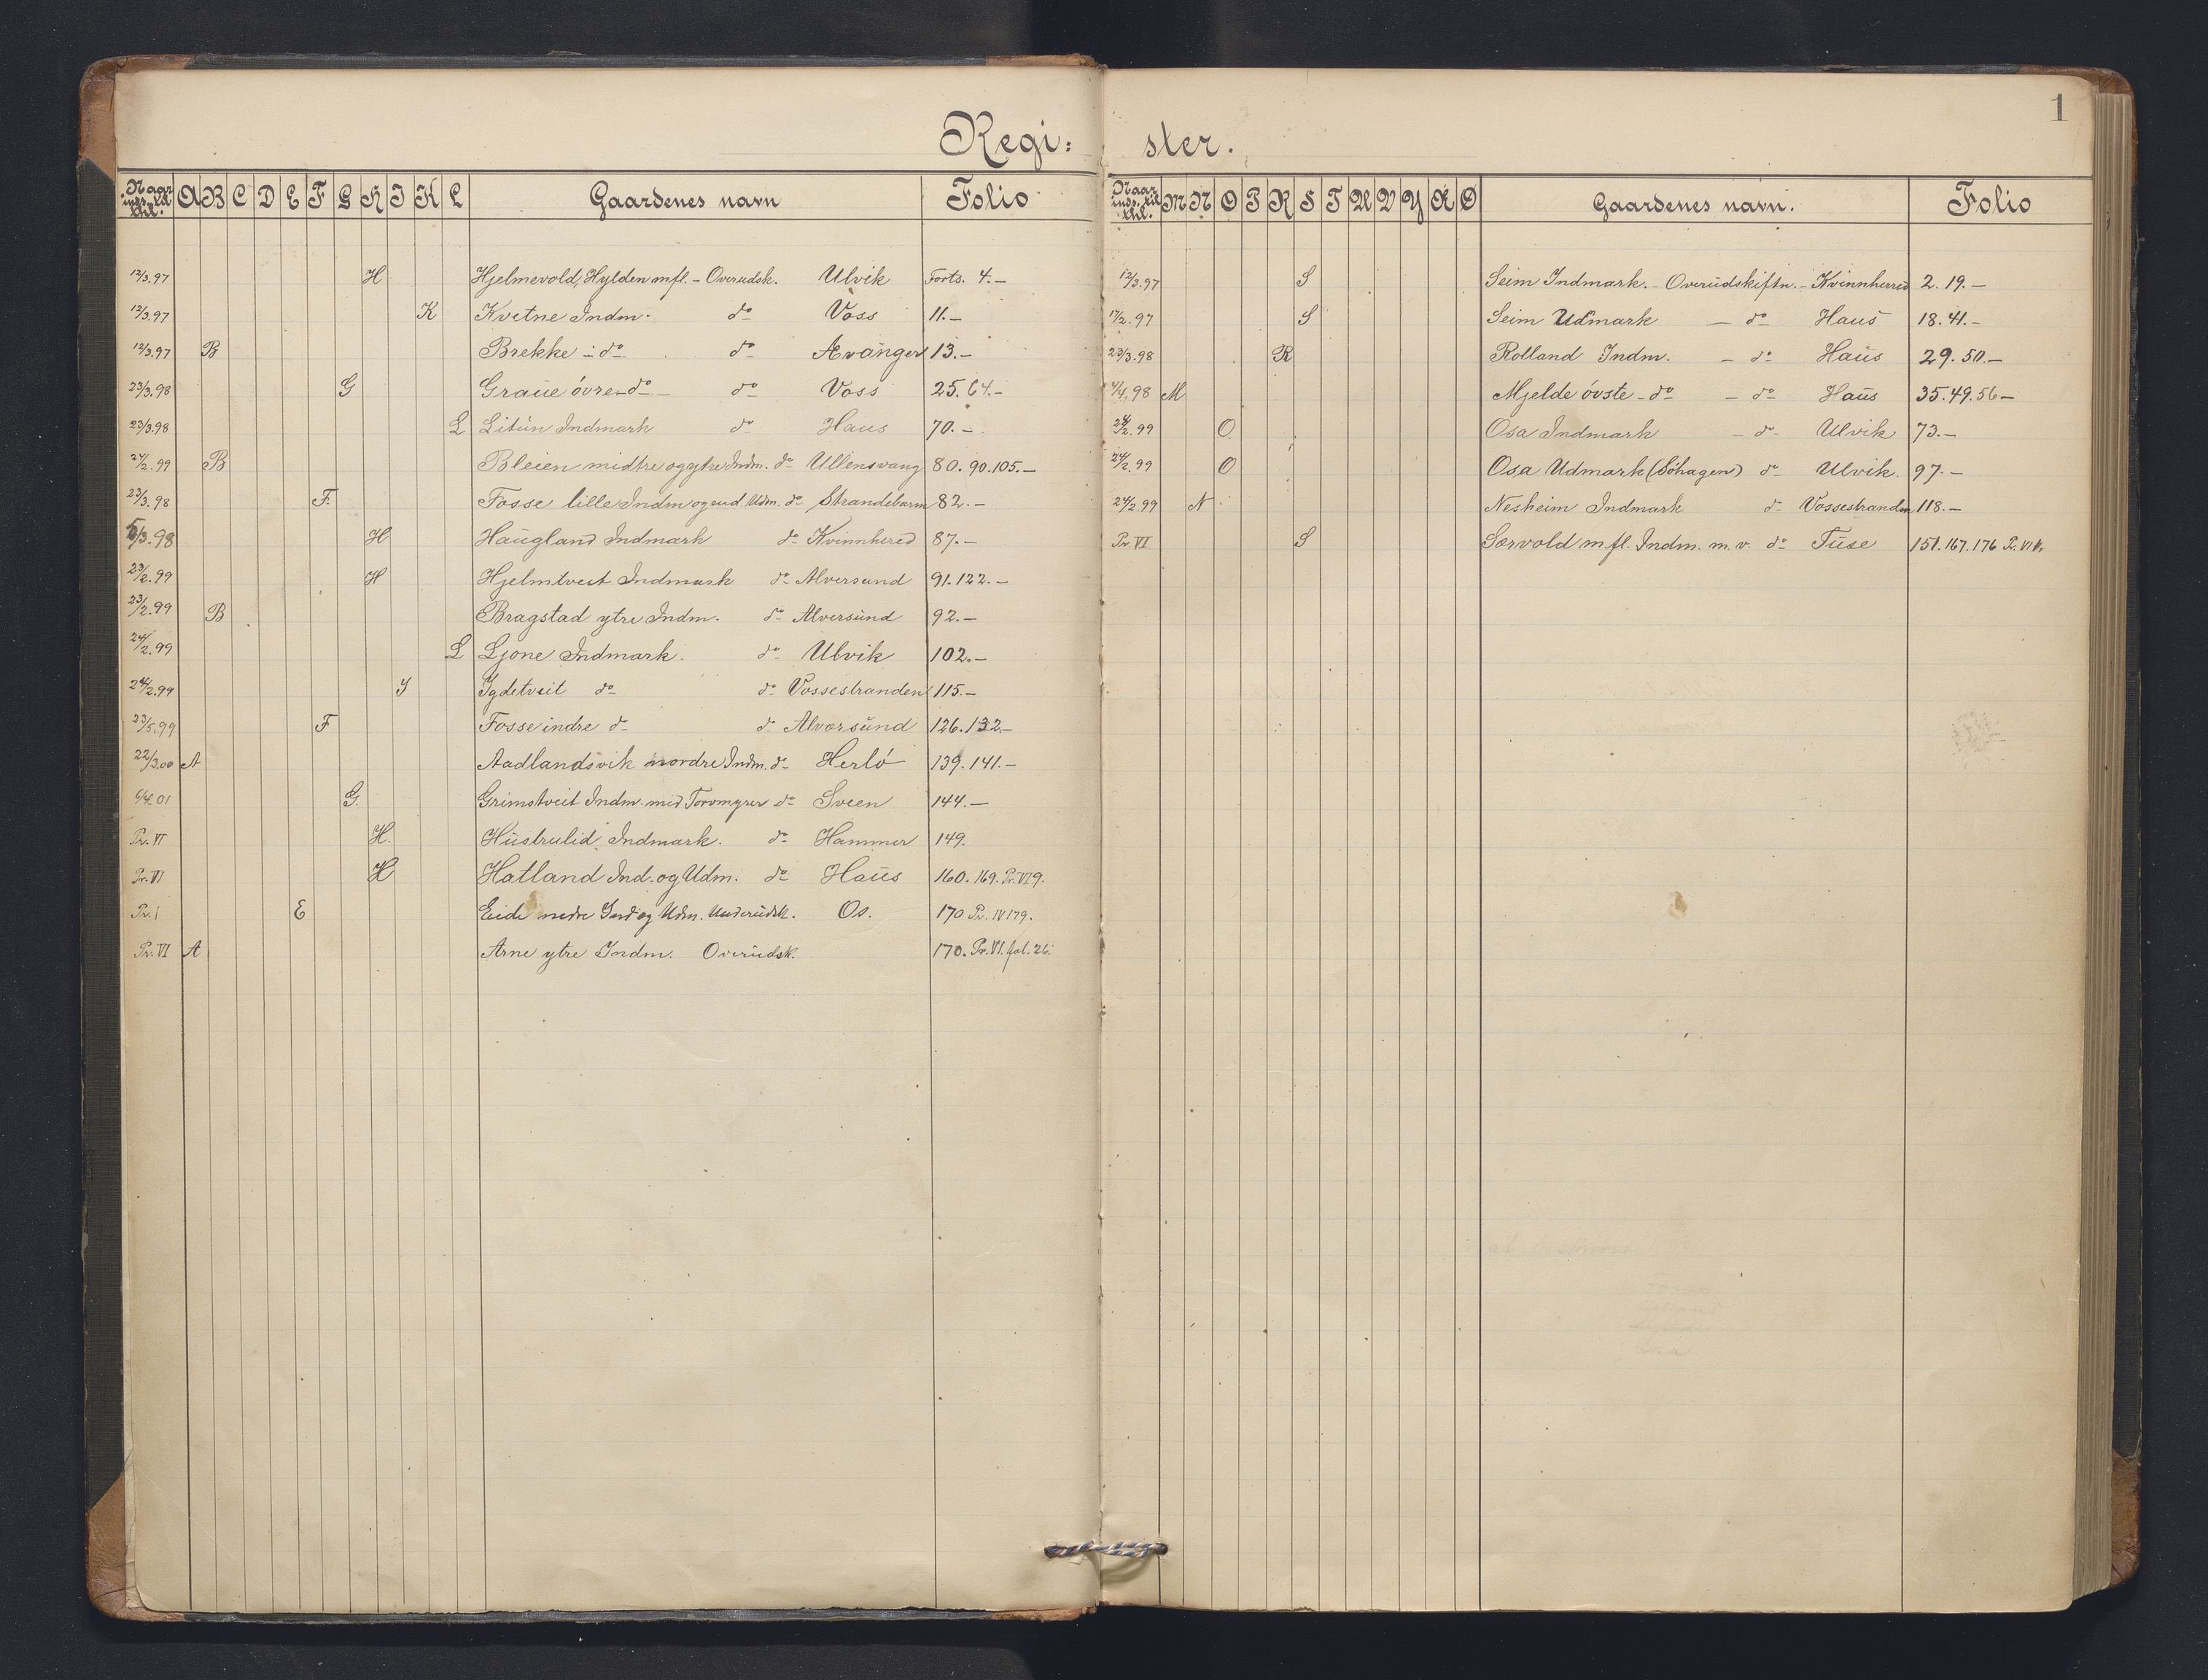 1
Regi: ster.
Naar A B C D E F G H I K L Gaardenes navn Folio
12/3.97 H Hjelmevold, Hylden mfl. - Overudsk. Ulvik Forts. 4.-
12/3.97 K Kvetne Indm. do Voss 11.-
12/3.97 B Brekke - do do Avanger 13.-
23/3.98 G Graue óvre - do - do Voss 25. 64.-
23/3.98 L Litún Indmark do Haus 70.-
24/2.99 B Bleien midtre og ytre Indm. do Ullensvang 80. 90. 105.-
23/3.98 F. Fosse lille Indm og end. Udm. do Strandebarm 82.-
5/3.98 H Haugland Indmark do Kvinnhered 87.-
23/2.99 H Hjelmtveit Indmark do Alversund 91. 122.-
23/2.99 B Bragstad ytre Indm. do Alversund 92.-
24/2.99 L Ljone Indmark. do Ulvik 102.-
24/2.99 I Igdetveit do do Vossestranden 115.-
23/5.99 F Fosse indre do do Alversund 126. 132.-
22/3.00 A Aadlandsvik nordre Indm. do Herló 139. 141.-
6/4.01 G. Grimstveit Indm. med Torvmyrer do Sveen 144.-
Pr. VI H. Hustrulid Indmark. do Hammer 149.
Pr. VI H Hatland Ind- og Udm. do Haus 160. 169. Pr. VI 9.
Pr. E Eide nedre Ind og Udm. Underudsk. Os. 170 Pr. IV 179.
Pr. VI A Arne ytre Indm. Overudsk. 170. Pr. VI. fol. 26.
Naar M N O P R S T U V Y Æ Ø Gaardenes navn. Folio
12/3.97 S Seim Indmark. - Overudskiftn. - Kvinnherred 2. 19.-
17/2.97 S Seim Udmark - do Haus 18. 41.-
23/3.98 R Rolland Indm. - do Haus 29. 50.-
4/4.98 M Mjelde óvste - do - do Haus 35. 49. 56-
24/2.99 O Osa Indmark - do Ulvik 73.-
24/2.99 O Osa Udmark (Sóhagen) do Ulvik. 97.-
24/2.99 N Nesheim Indmark do Vossestranden 118.-
Pr. VI S Sørvold mfl. Indm. m. v. do Fuse 151. 167. 176